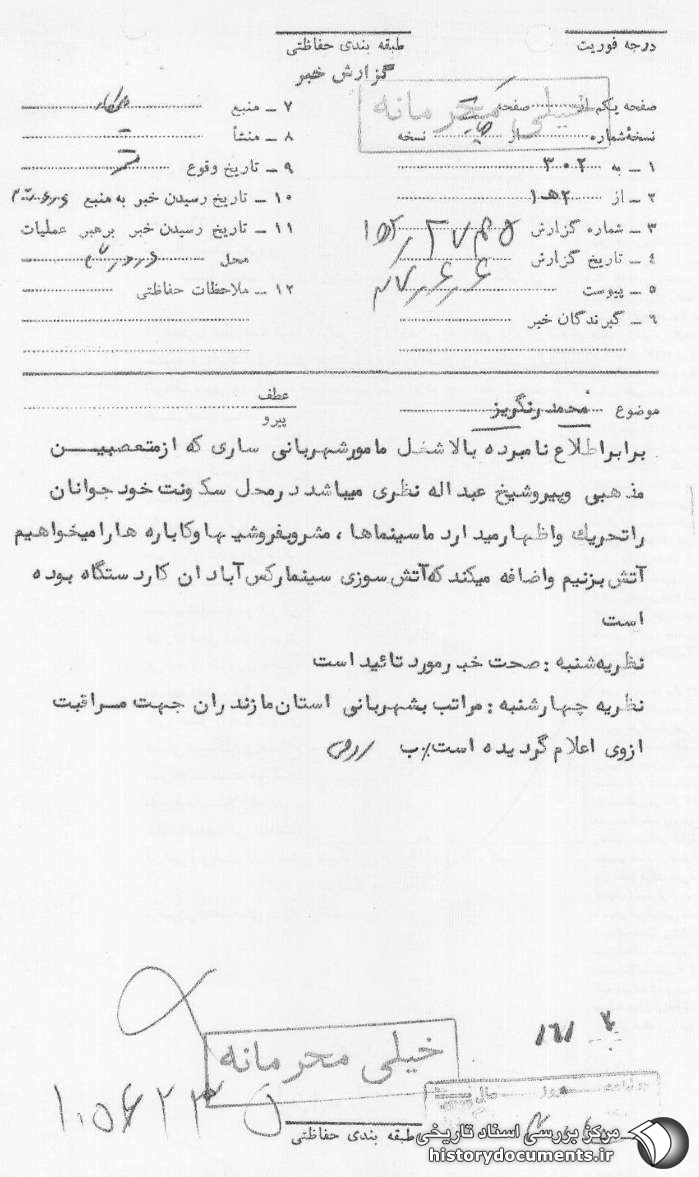 درجه فوریت
طبقه بندی حفاظتی
گزارش خبر
خیلی محرمانه
صفحه یکم از صفحه
نسخهٔ شماره از نسخه
۱ ـ به ۳۰۲
۲ ـ از ۱ه۲
۳ ـ شماره گزارش
٤ ـ تاریخ گزارش
۵ ـ پیوست
٦ ـ گیرندگان خبر
۷ ـ منبع
۸ ـ منشأ
۹ ـ تاریخ وقوع
۱۰ ـ تاریخ رسیدن خبر به منبع
۱۱ ـ تاریخ رسیدن خبر برهبر عملیات
محل
۱۲ ـ ملاحظات حفاظتی
موضوع محمد رنگریز
عطف
پیرو
برابر اطلاع نامبرده بالا شغل مامورشهربانی ساری که ازمتعصبیـــن
مذهبی وپیروشیخ عبد اله نظری میباشد درمحل سکونت خود جوانان
راتحریک واظهارمیدارد ماسینماها ، مشروبفروشیها وکاباره هارامیخواهیم
آتش بزنیم واضافه میکند که آتش سوزی سینمارکس آبادان کاردستگاه بوده
است
نظریه شنبه : صحت خبر مورد تائید است
نظریه چهارشنبه : مراتب بشهربانی استان مازندران جهت مراقبت
ازوی اعلام گردیده است٪ ب
خیلی محرمانه
۱۶۱
۱۰۵۶۲۲۳
طبقه بندی حفاظتی
مرکز بررسی اسناد تاریخی
historydocuments.ir